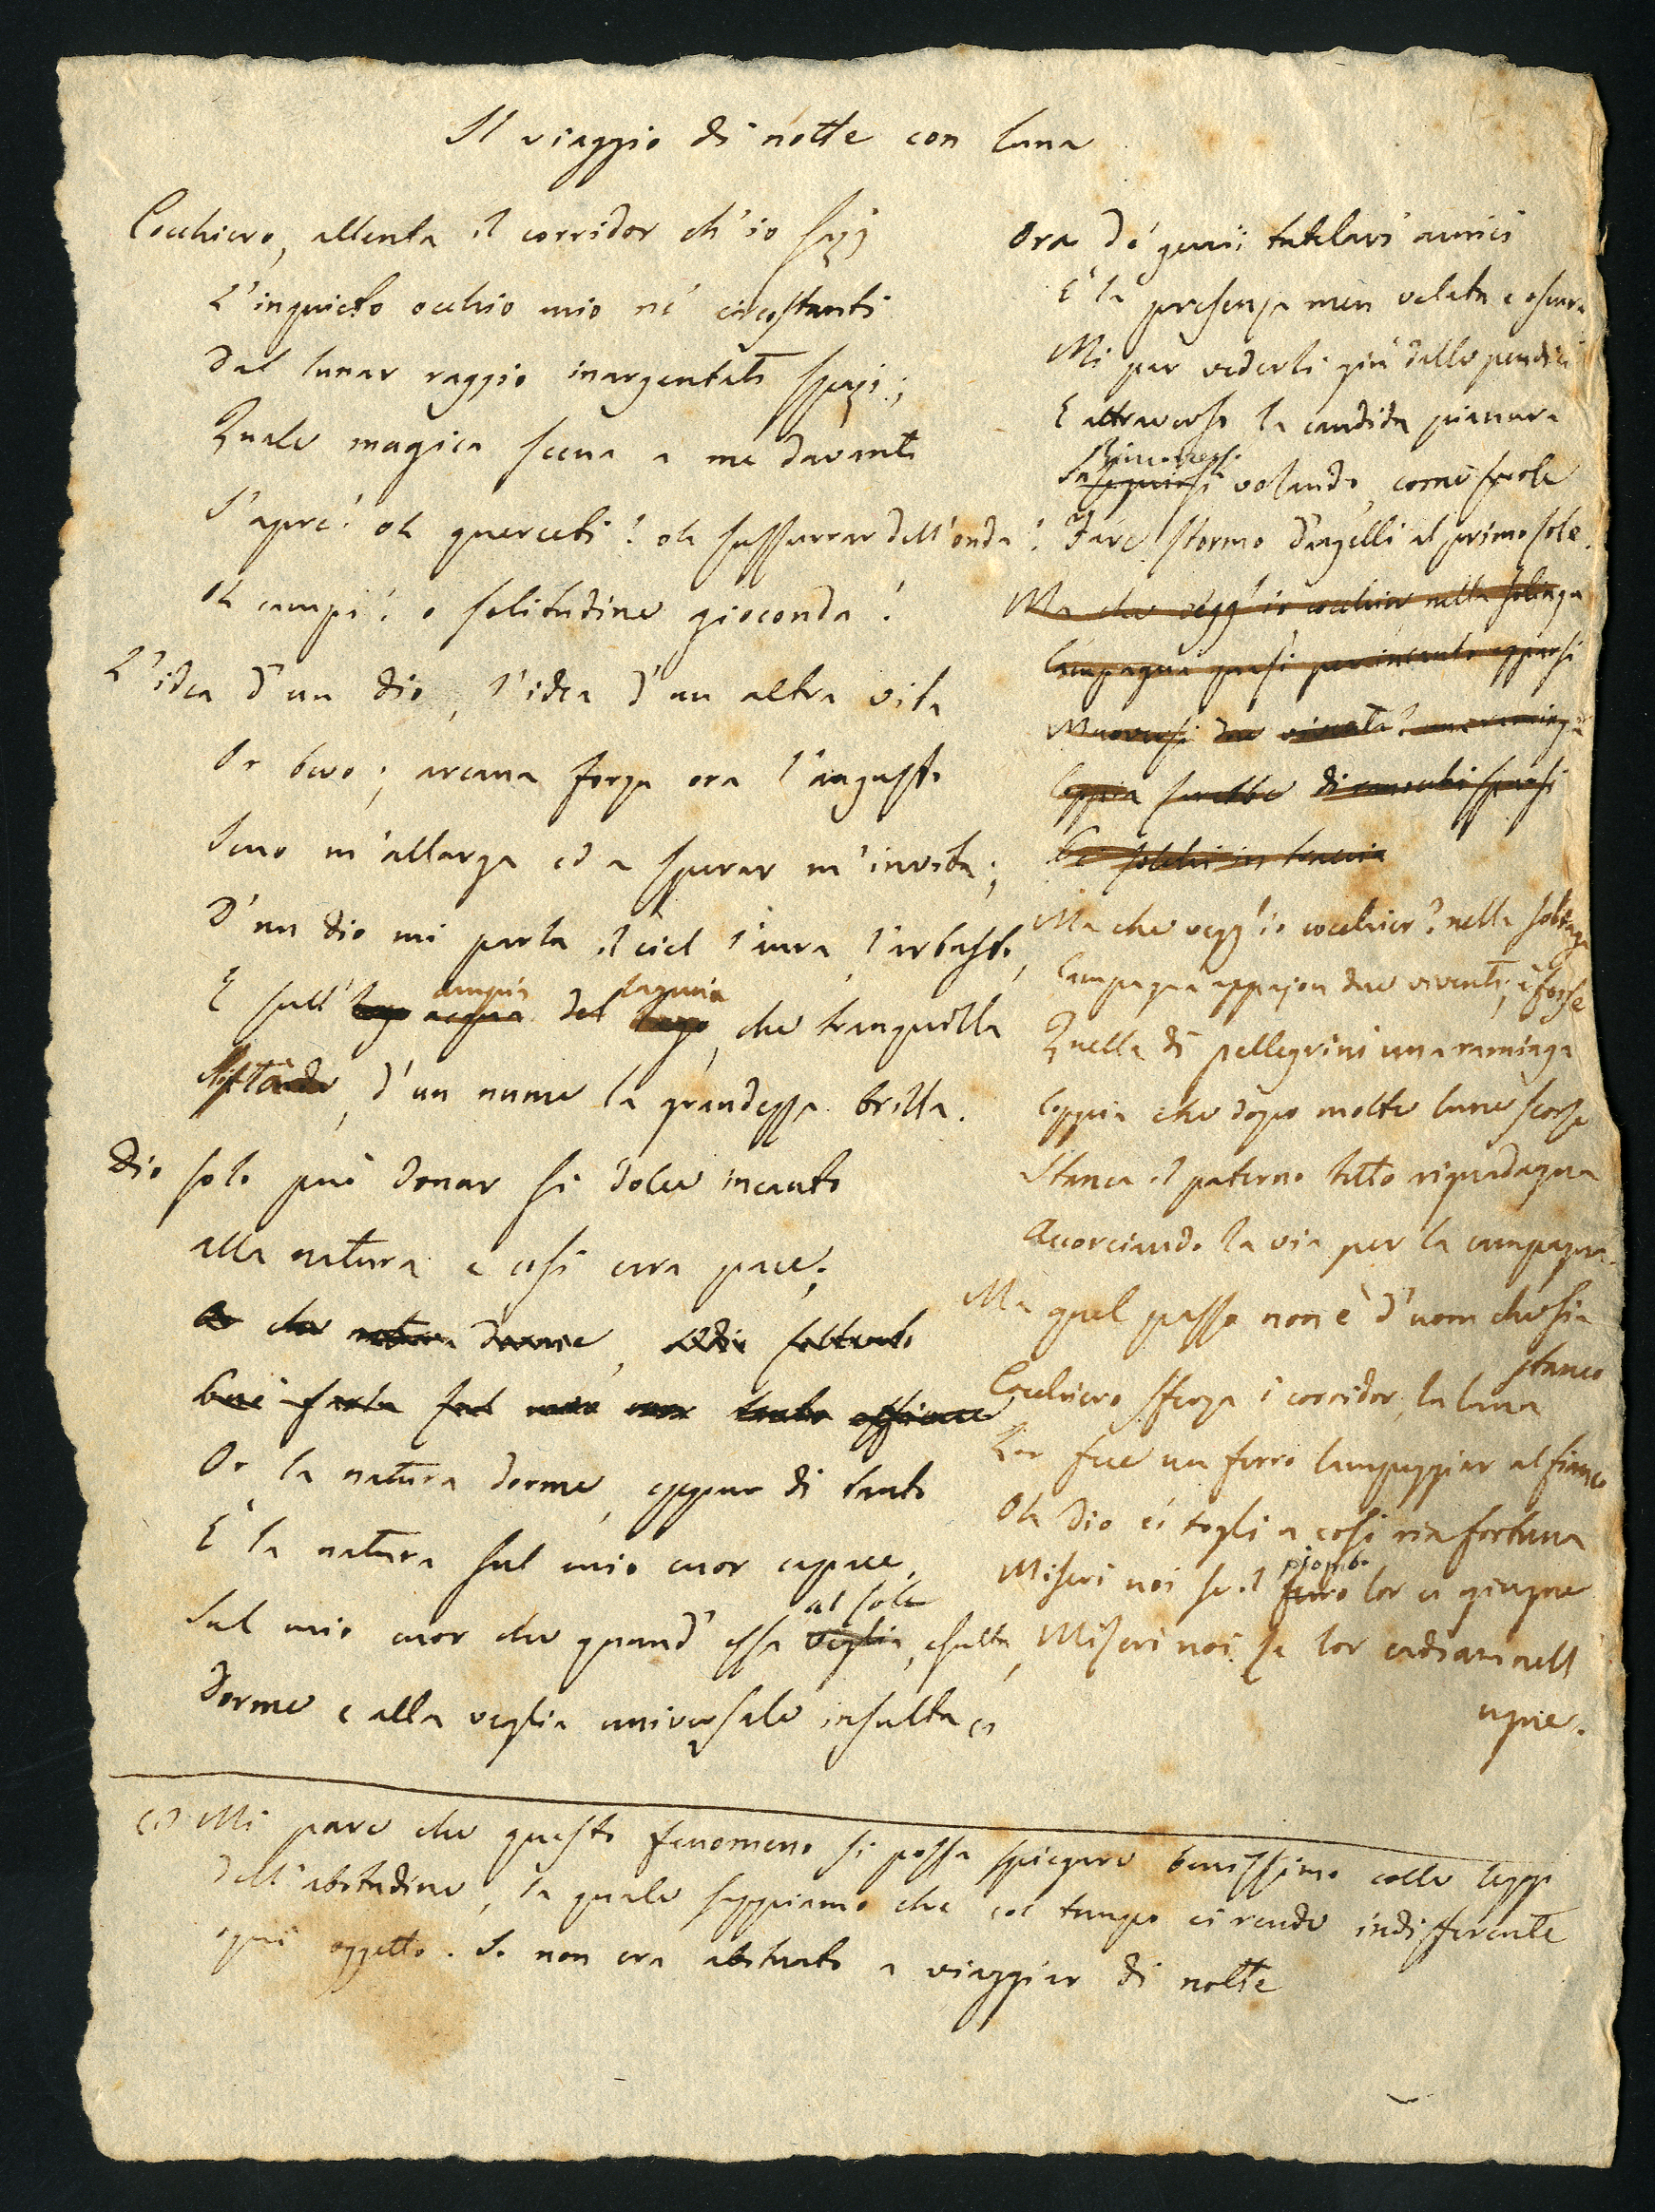 Il viaggio di notte con luna
Cocchiero, allenta il corridor ch'io sazj
L'inquieto occhio mio ne' circostanti
Dal lunar raggio inargentati spazj;
Quale magica scena a me davanti
S'apre! oh querceti! oh sussurrar dell'onda!
Oh campi! o solitudine gioconda!
L'idea d'un dio, l'idea d'un altra vita
Or bevo; arcana forza ora l'angusto
Seno m'allarga ed a sperar m'invita;
D'un dio mi parla il ciel l'aura, l'arbusto,
E sull' ampia laguna, che tranquilla
, d'un nume la grandezza brilla.
Dio solo può donar si dolce incanto
alla natura e così cara pace;
Or che natura dorme, soltanto
sul mio cor tanto efficace
Or la natura dorme, eppur di tanto
È la natura sul mio cuor capace,
al sole
Sul mio cuor che quand' essa veglia, esulta,
Dorme e alla veglia universale insulta (1)
Ora de' genii tutelari amici
È la presenza men velata e oscura
Mi par vederli giù dalle pendici
E attraverso la candida pianura
volando, come suole
Fare stormo d'augelli al primo sole.
Ma che vegg'io cocchier, nella solinga
Campagna quasi per incanto apparsi
Muoversi due viventi? una raminga
Coppia sarebbe di ranocchi sparsi
in traccia
Ma che vegg'io cocchier? nella solinga
Campagna appajon due viventi, è forse
Quella di pellegrini una raminga
Coppia che dopo molte lune scorse
Stanca il paterno tetto riguadagna
Accorciando la via per la campagna.
Ma quel passo non è d'uom che sia
stanco
Cocchiero sferza i corridor, la luna
Lor fece un ferro lampeggiar al fianco
Oh dio ci togli a così ria fortuna
piombo
Miseri noi se il ferro lor ci giugne
Miseri noi se lor cadiam nell'
ugne.
(1) Mi pare che questo fenomeno si possa spiegare benissimo colle leggi
dell'abitudine, la quale sappiamo che col tempo ci rende indifferente
ogni oggetto. Io non era abituato a viaggiar di notte